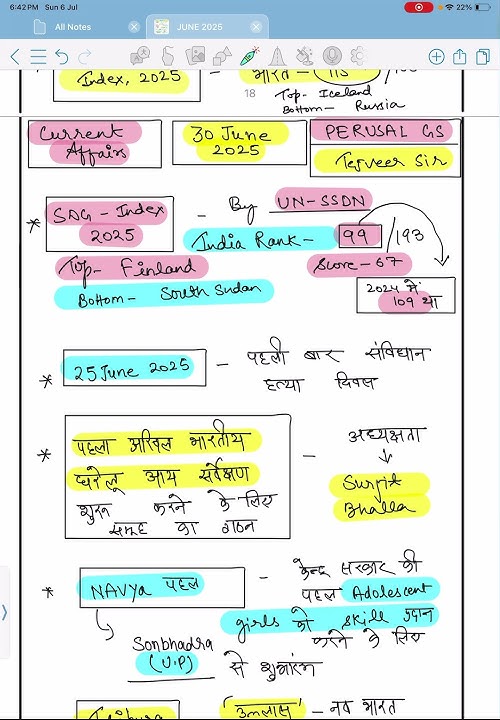 6:42 PM Sun 6 Jul
22%
All Notes
JUNE 2025
Index, 2025 - भारत - 115
18
Top- Iceland
Bottom- Russia
Current Affairs
30 June 2025
PERUSAL GS
Tejveer Sir
* SDG - Index 2025 - By UN-SSDN
India Rank - 99 /193
Top- Finland
Score-67
Bottom- South Sudan
2024 में 109 था
* 25 June 2025 - पहली बार संविधान
हत्या दिवस
* पहला अखिल भारतीय
घरेलू आय सर्वेक्षण
शुरू करने के लिए
समूह का गठन
- अध्यक्षता
↓
Surjit
Bhalla
* NAVYA पहल - केन्द्र सरकार की
पहल Adolescent
girls को skill प्रदान
करने के लिए
Sonbhadra
(U.P) से शुभारंभ
'उल्लास' - नव भारत